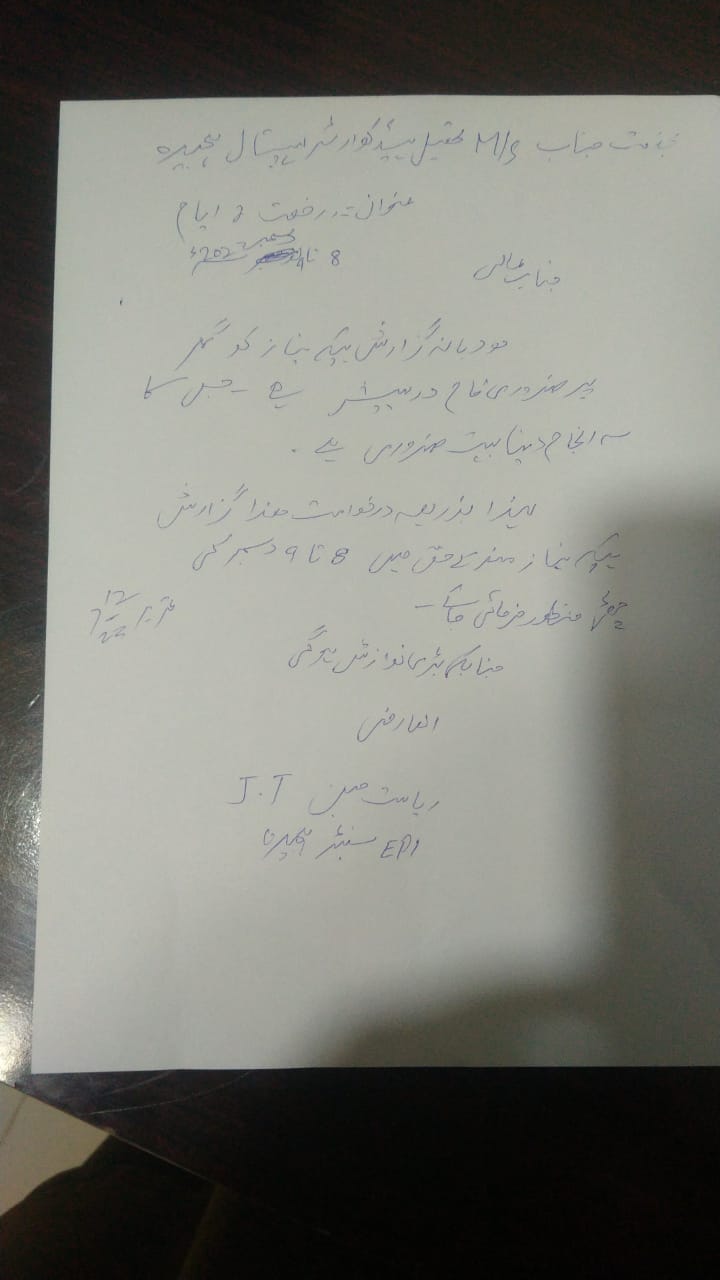 بخدمت جناب M/S تحصیل ہیڈ کوارٹر ہسپتال ہجیرہ
عنوان:۔ رخصت 2 ایام
8 تا 9 دسمبر 2022ء
جناب عالی
مودبانہ گزارش ہیکہ بنیاز کو گھر
پر ضروری کام درپیش ہے ۔ جس کا
سر انجام دینا بہت ضروری ہے ۔
لہذا بذریعہ درخواست ھذا گزارش
ہیکہ نیاز مند کے حق میں 8 تا 9 دسمبر کی
چھٹی منظور فرمائی جائے ۔
جناب کی بڑی نوازش ہوگی
العارض
ریاست J.T
EPI سنٹر ہجیرہ